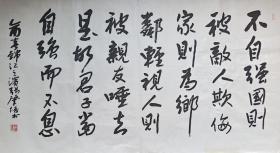 不自强國則
被敵人欺侮
家則為鄉
鄰輕視人則
被親友唾
是故君子當
自強而不息
錦江之濱